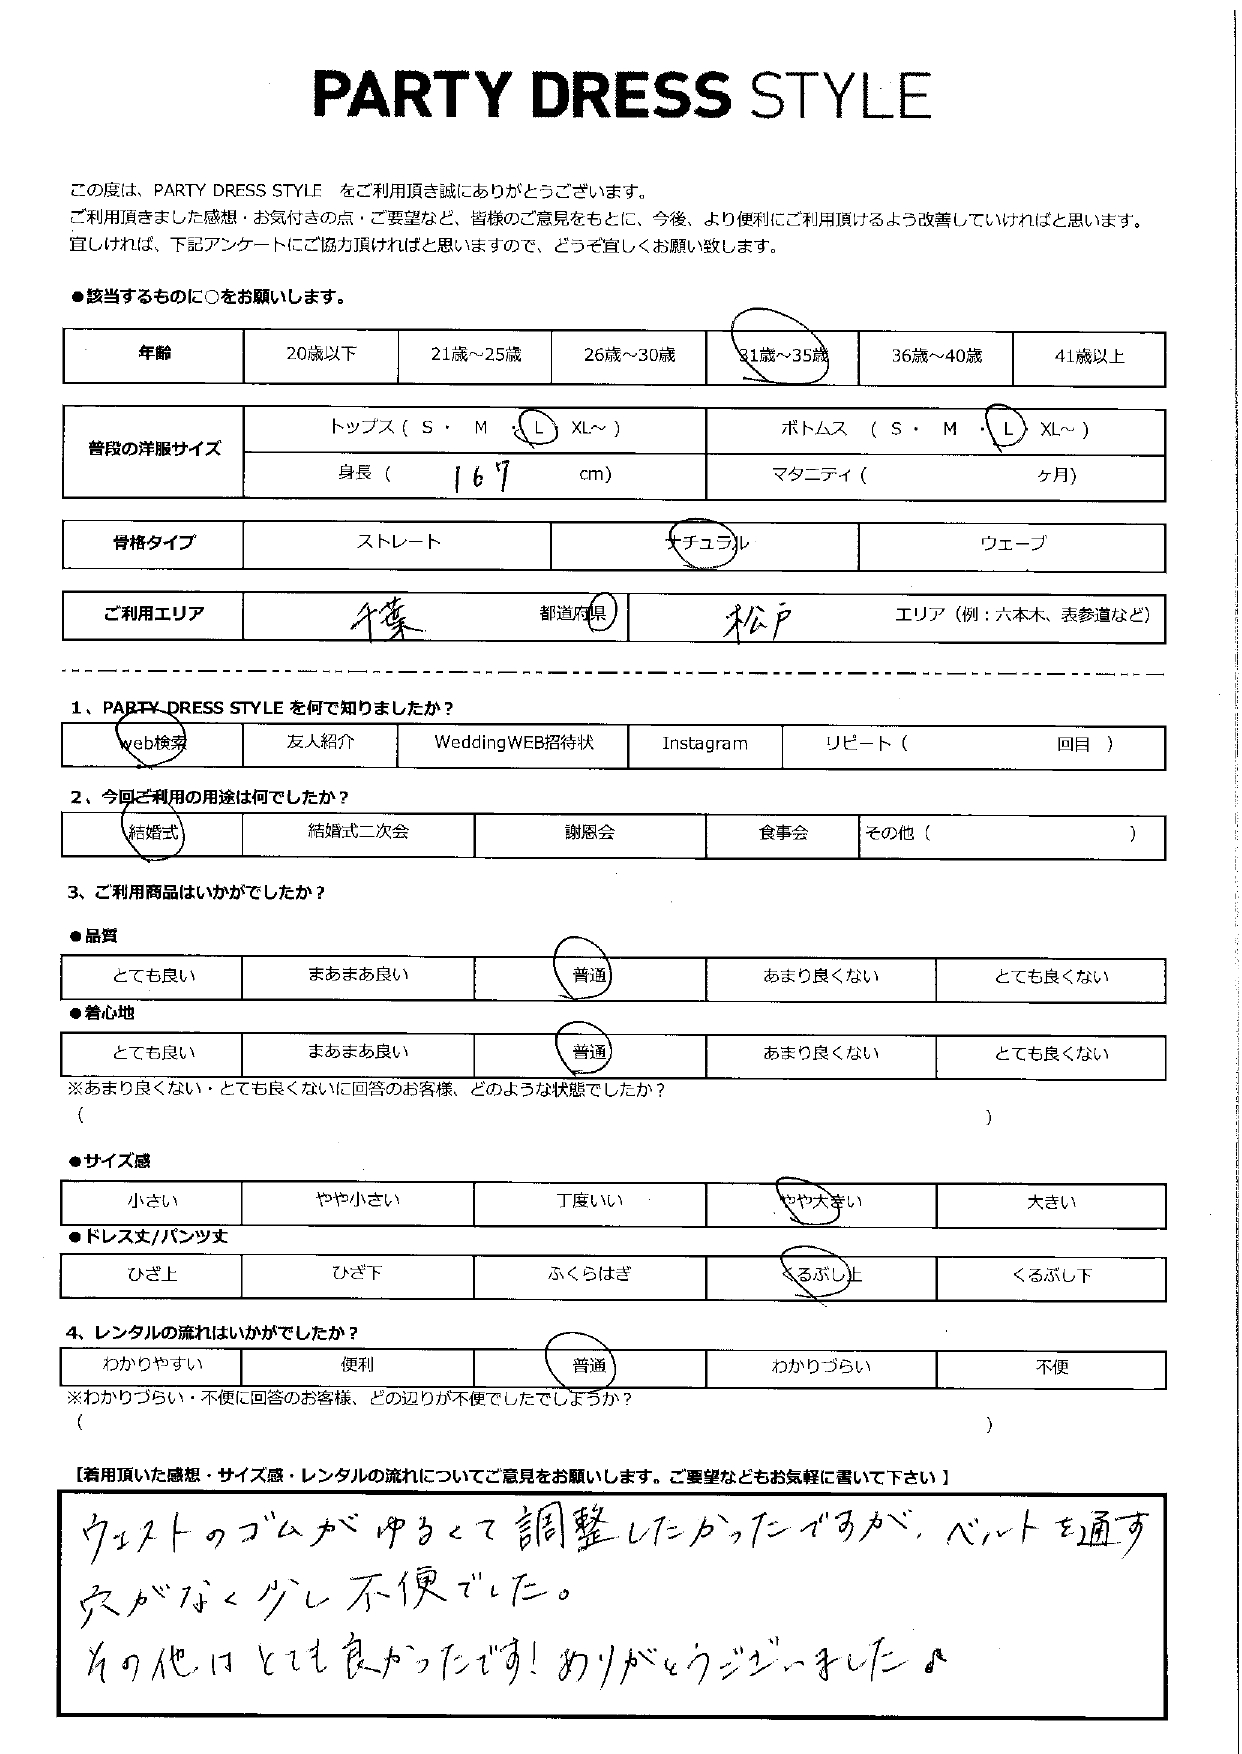 PARTY DRESS STYLE
この度は、PARTY DRESS STYLE をご利用頂き誠にありがとうございます。
ご利用頂きました感想・お気付きの点・ご要望など、皆様のご意見をもとに、今後、より便利にご利用頂けるよう改善していければと思います。
宜しければ、下記アンケートにご協力頂ければと思いますので、どうぞ宜しくお願い致します。
●該当するものに○をお願いします。
年齢 20歳以下 21歳～25歳 26歳～30歳 31歳～35歳 36歳～40歳 41歳以上
普段の洋服サイズ トップス ( S ・ M ・ L XL～ ) ボトムス ( S ・ M ・ L XL～ )
身長 ( 167 cm) マタニティ ( ヶ月)
骨格タイプ ストレート ナチュラル ウェーブ
ご利用エリア 千葉 都道府県 松戸 エリア（例：六本木、表参道など）
1、PARTY DRESS STYLE を何で知りましたか？
web検索 友人紹介 WeddingWEB招待状 Instagram リピート ( 回目 )
2、今回ご利用の用途は何でしたか？
結婚式 結婚式二次会 謝恩会 食事会 その他 ( )
3、ご利用商品はいかがでしたか？
●品質
とても良い まあまあ良い 普通 あまり良くない とても良くない
●着心地
とても良い まあまあ良い 普通 あまり良くない とても良くない
※あまり良くない・とても良くないに回答のお客様、どのような状態でしたか？
( )
●サイズ感
小さい やや小さい 丁度いい やや大きい 大きい
●ドレス丈/パンツ丈
ひざ上 ひざ下 ふくらはぎ くるぶし上 くるぶし下
4、レンタルの流れはいかがでしたか？
わかりやすい 便利 普通 わかりづらい 不便
※わかりづらい・不便に回答のお客様、どの辺りが不便でしたでしようか？
( )
【着用頂いた感想・サイズ感・レンタルの流れについてご意見をお願いします。ご要望などもお気軽に書いて下さい 】
ウェストのゴムがゆるくて調整したかったですが、ベルトを通す
穴がなく少し不便でした。
その他はとても良かったです！ありがとうございました♪